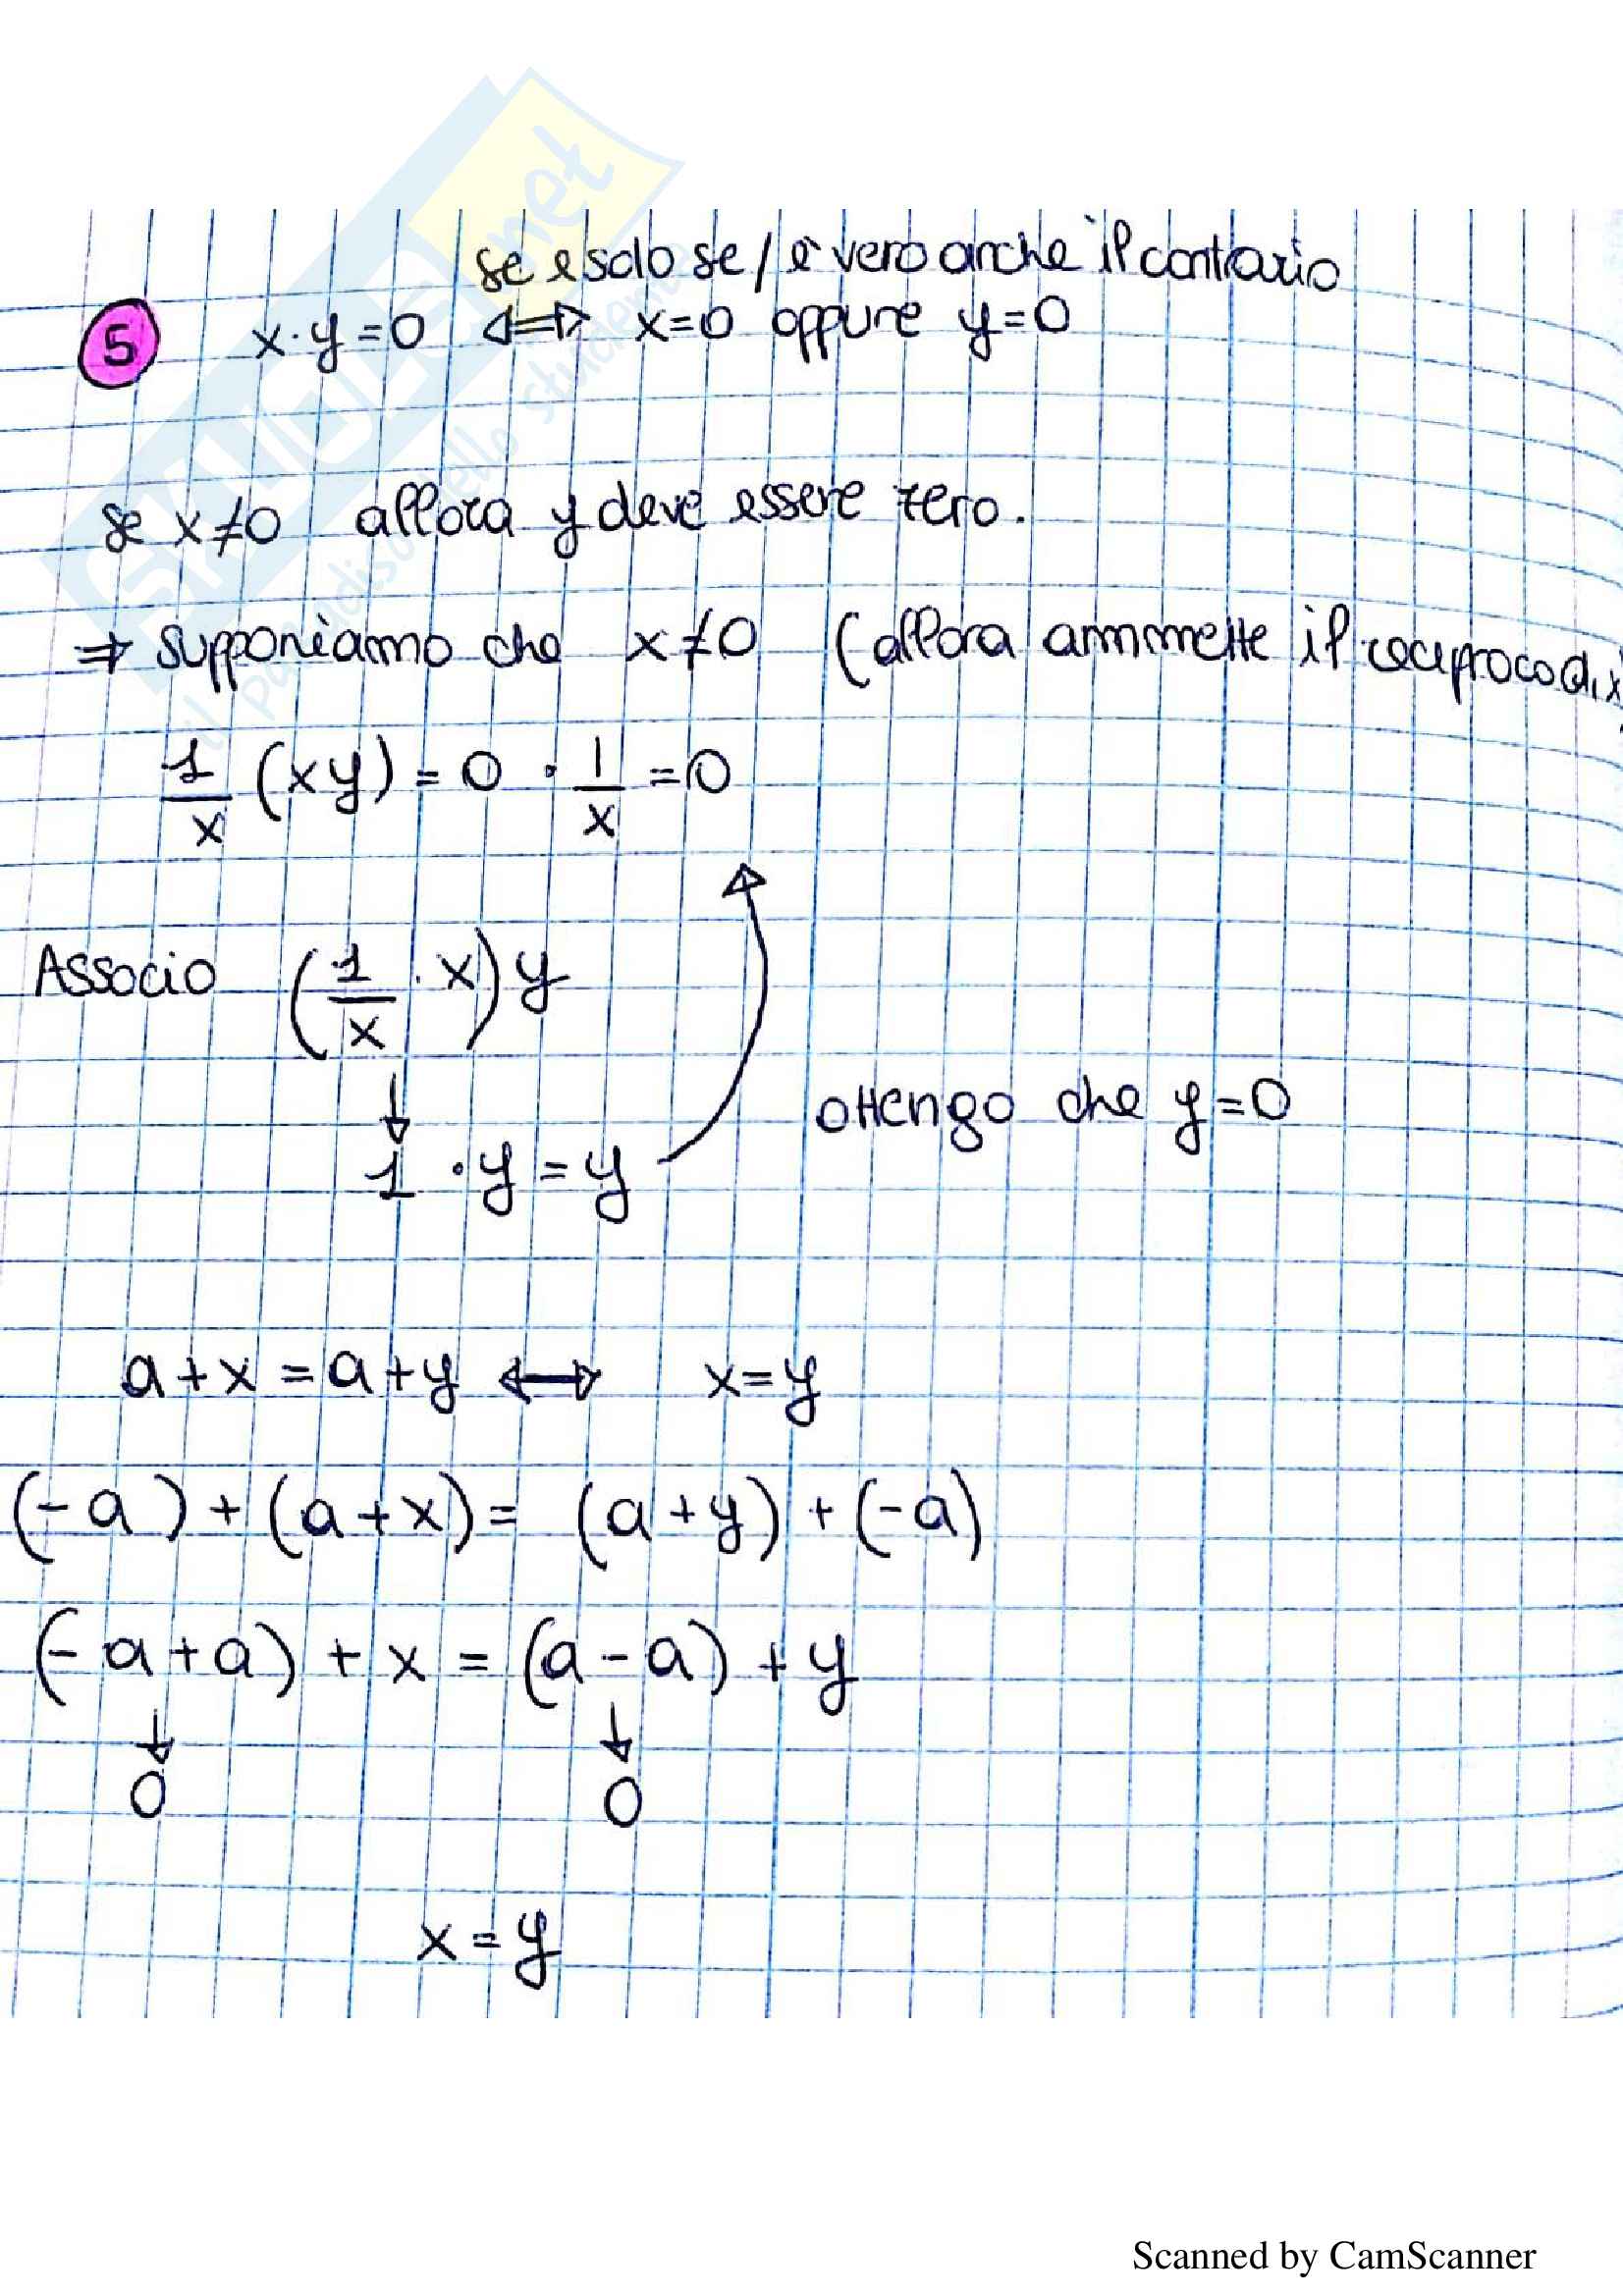 SKUOLA.net
il paradiso dello studente
se e solo se / è vero anche il contrario
5 x·y=0 ⇔ x=0 oppure y=0
se x≠0 allora y deve essere zero.
⇒ supponiamo che x≠0 (allora ammette il reciproco di x)
1/x (xy) = 0 · 1/x = 0
Associo (1/x · x) y
↓
1 · y = y
ottengo che y=0
a+x = a+y ↔ x=y
(-a) + (a+x) = (a+y) + (-a)
(-a+a) + x = (a-a) + y
↓ ↓
0 0
x = y
Scanned by CamScanner